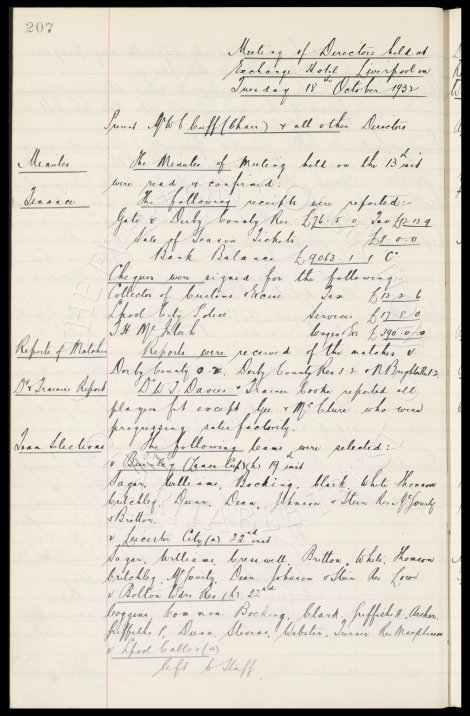 207
Meeting of Directors held at
Exchange Hotel Liverpool on
Tuesday 18th October 1932
Present Mr W C Cuff (Chair) & all other Directors
Minutes The Minutes of Meeting held on the 13th inst
were read & confirmed.
Finance The following receipts were reported:-
Gate v Derby County Res £76. 5. 0 Tax £12 13 9
Sale of Season Tickets £8. 0. 0
Bank Balance £9063. 1. 1 Cr
Cheques were signed for the following:-
Collector of Customs & Excise Tax £13. 2. 6
Lpool City Police Services £17. 8. 0
T H McIntosh Wages & Ex £390. 0. 0
Reports of Matches Reports were received of the matches v
Derby County Derby County Res 3-2 v N Brighton 1 2.
Dr & Trainers Report Dr W J Davies & Trainer Cooke reported all
players fit except Gee & McClure who were
progressing satisfactorily.
Team Selections The following teams were selected:-
v Burnley (Lancs Cup) (h) 19th inst
Sagar, Williams, Bocking, Clark, White Thomson
Critchley, Dunn, Dean, Johnson & Stein Res McGourty
& Britton.
v Leicester City (a) 22nd inst
Sagar, Williams, Cresswell, Britton, White, Thomson
Critchley, McGourty, Dean, Johnson & Stein Res Lowe
v Bolton Wdrs Res (h) 22nd
Coggins, Common, Bocking, Clark, Griffiths A, Archer,
Griffiths P, Dunn, Stevens, Webster, Turner Res Macpherson
v Lpool Cables (a)
left to Staff.